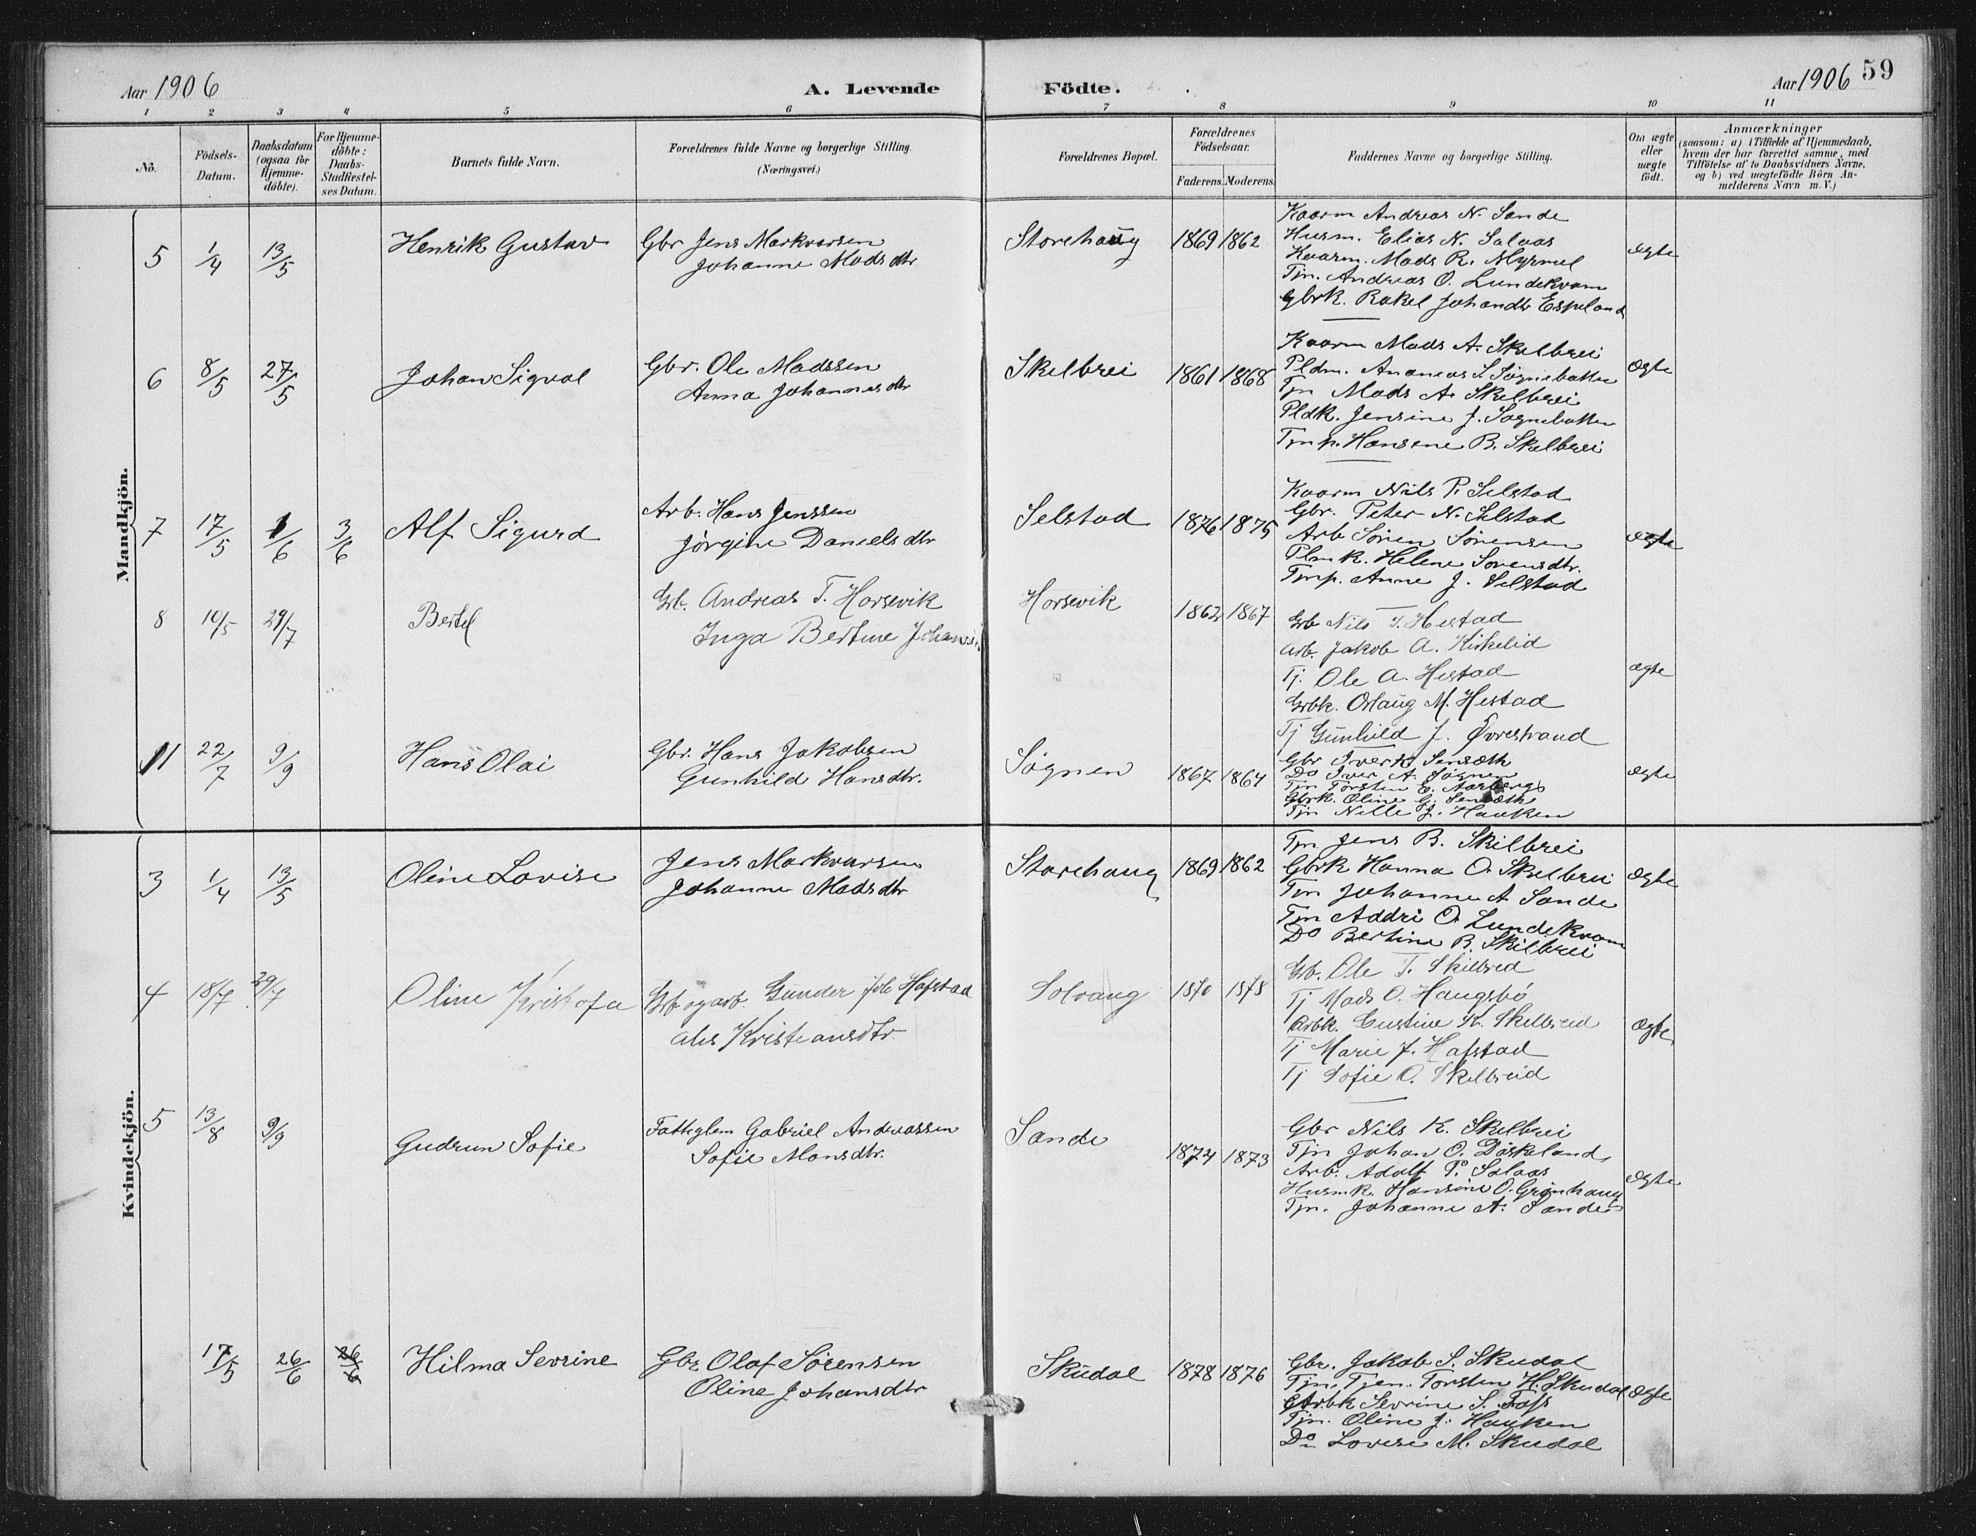 Aar 1906
A. Levende Födte.
Aar 1906 59
1 2 3 4 5 6 7 8 9 10 11
No.
Födsels-
Datum.
Daabsdatum
(ogsaa for
Hjemme-
döbte).
For Hjemme-
döbte:
Daabs-
Stadfæstel-
ses Datum.
Barnets fulde Navn.
Forældrenes fulde Navne og borgerlige Stilling.
(Næringsvei.)
Forældrenes Bopæl.
Forældrenes
Födselsaar.
Faderens. Moderens.
Faddernes Navne og borgerlige Stilling.
Om ægte
eller
uægte
födt.
Anmærkninger
(saasom: a) i Tilfælde af Hjemmedaab,
hvem der har forrettet samme, med
Tilföielse af to Daabsvidners Navne,
og b) ved uægtefödte Börn An-
melderens Navn m. V.)
Mandkjön.
5 1/4 13/5 Henrik Gustav
Gbr Jens Markvarsen
Johanne Madsdtr
Storehaug 1869 1862
Kaarm Andreas N. Sande
Husm. Elias N. Salaas
Kaarm. Mads R. Myrmel
Tjn. Andreas O. Lundekvam
Gbrk. Rakel Johandtr Espeland
ægte
6 8/5 27/5 Johan Sigval
Gbr. Ole Madssen
Anna Johannesdtr
Skelbrei 1861 1868
Kaarm Mads A. Skelbrei
Pldm. Ananias S. Søgnebotten
Tjn Mads A. Skelbrei
Pldk. Jensine J. Sognebotten
Tjnp. Hansine B. Skelbrei
ægte
7 17/5 1/6 3/6 Alf Sigurd
Arb. Hans Jenssen
Jørgine Danielsdtr
Selstad 1876 1875
Kaarm Nils P. Selstad
Gbr. Peter N. Selstad
Arb Søren Sørensen
Plmk. Helene Sorensdtr.
Tjnp. Anne J. Selstad
ægte
8 10/5 29/7 Bertel
Gb. Andreas T. Horsevik
Inga Bertine
Horsevik 1862 1867
Gb Nils T. Hestad
Arb. Jakob A. Kirkelid
Tj. Ole A. Hestad
Gbk. Oslaug M. Hestad
Tj Gunhild J. Øvrestrand
ægte
11 22/7 9/9 Hans Olai
Gbr. Hans Jakobsen
Gunhild Hansdtr.
Søgnen 1867 1864
Gbr Iver K. Senseth
Do Iver A. Søgnen
Tjn Torsten E. Aarberg
Gbrk. Oline G. Senseth
Tjn Nille J. Hauken
ægte
Kvindekjön.
3 1/4 13/5 Oline Lovise
Jens Markvarsen
Johanne Madsdtr
Storehaug 1869 1862
Tjn Jens B. Skilbrei
Gbrk Hanna O. Skelbrei
Tjn Johanne A Sande
Tjn Addri O. Lundekvam
Do Bertine B. Skilbrei
ægte
4 18/7 29/7 Oline Kristofa
Gb og arb. Gunder Joh Hafstad
Kristiansdtr
Solvang 1870 1878
Gb. Ole T. Skilbreid
Tj Mads O. Haugsbö
Arbk. Gustine K. Skelbreid
Tj Marie J. Hafstad
Tj Sofie O. Skelbreid
ægte
5 13/8 9/9 Gudrun Sofie
Fattiglem Gabriel Andreassen
Sofie Monsdtr.
Sande 1874 1873
Gbr Nils K. Skelbrei
Tjn Johan O. Döskeland
Arb. Adolf P. Salaas
Husmk. Hansine O. Grønhaug
Tjn. Johanne A. Sande
ægte
17/5 26/6 26/6 Hilma Sevrine
Gbr Olaf Sørensen
Oline Johansdtr
Skudal 1878 1876
Gbr. Jakob S. Skudal
Tjn. Tjen. Torsten H. Skudal
Arbk Sevrine S. Foss
Tjn. Oline J. Hauken
Do Lovise M. Skudal
ægte